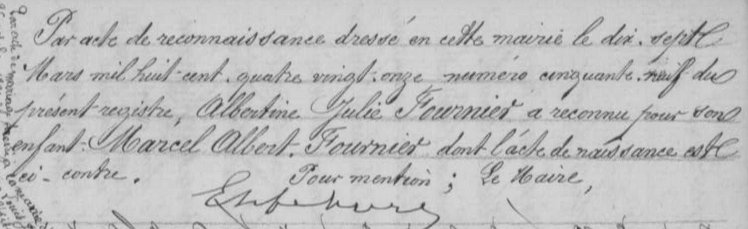 Par acte de reconnaissance dressé en cette mairie le dix-sept
Mars mil huit-cent-quatre vingt-onze numéro cinquante-neuf du
présent registre, Albertine Julie Fournier a reconnu pour son
enfant Marcel Albert Fournier dont l'acte de naissance est
ci-contre. Pour mention; Le Maire,